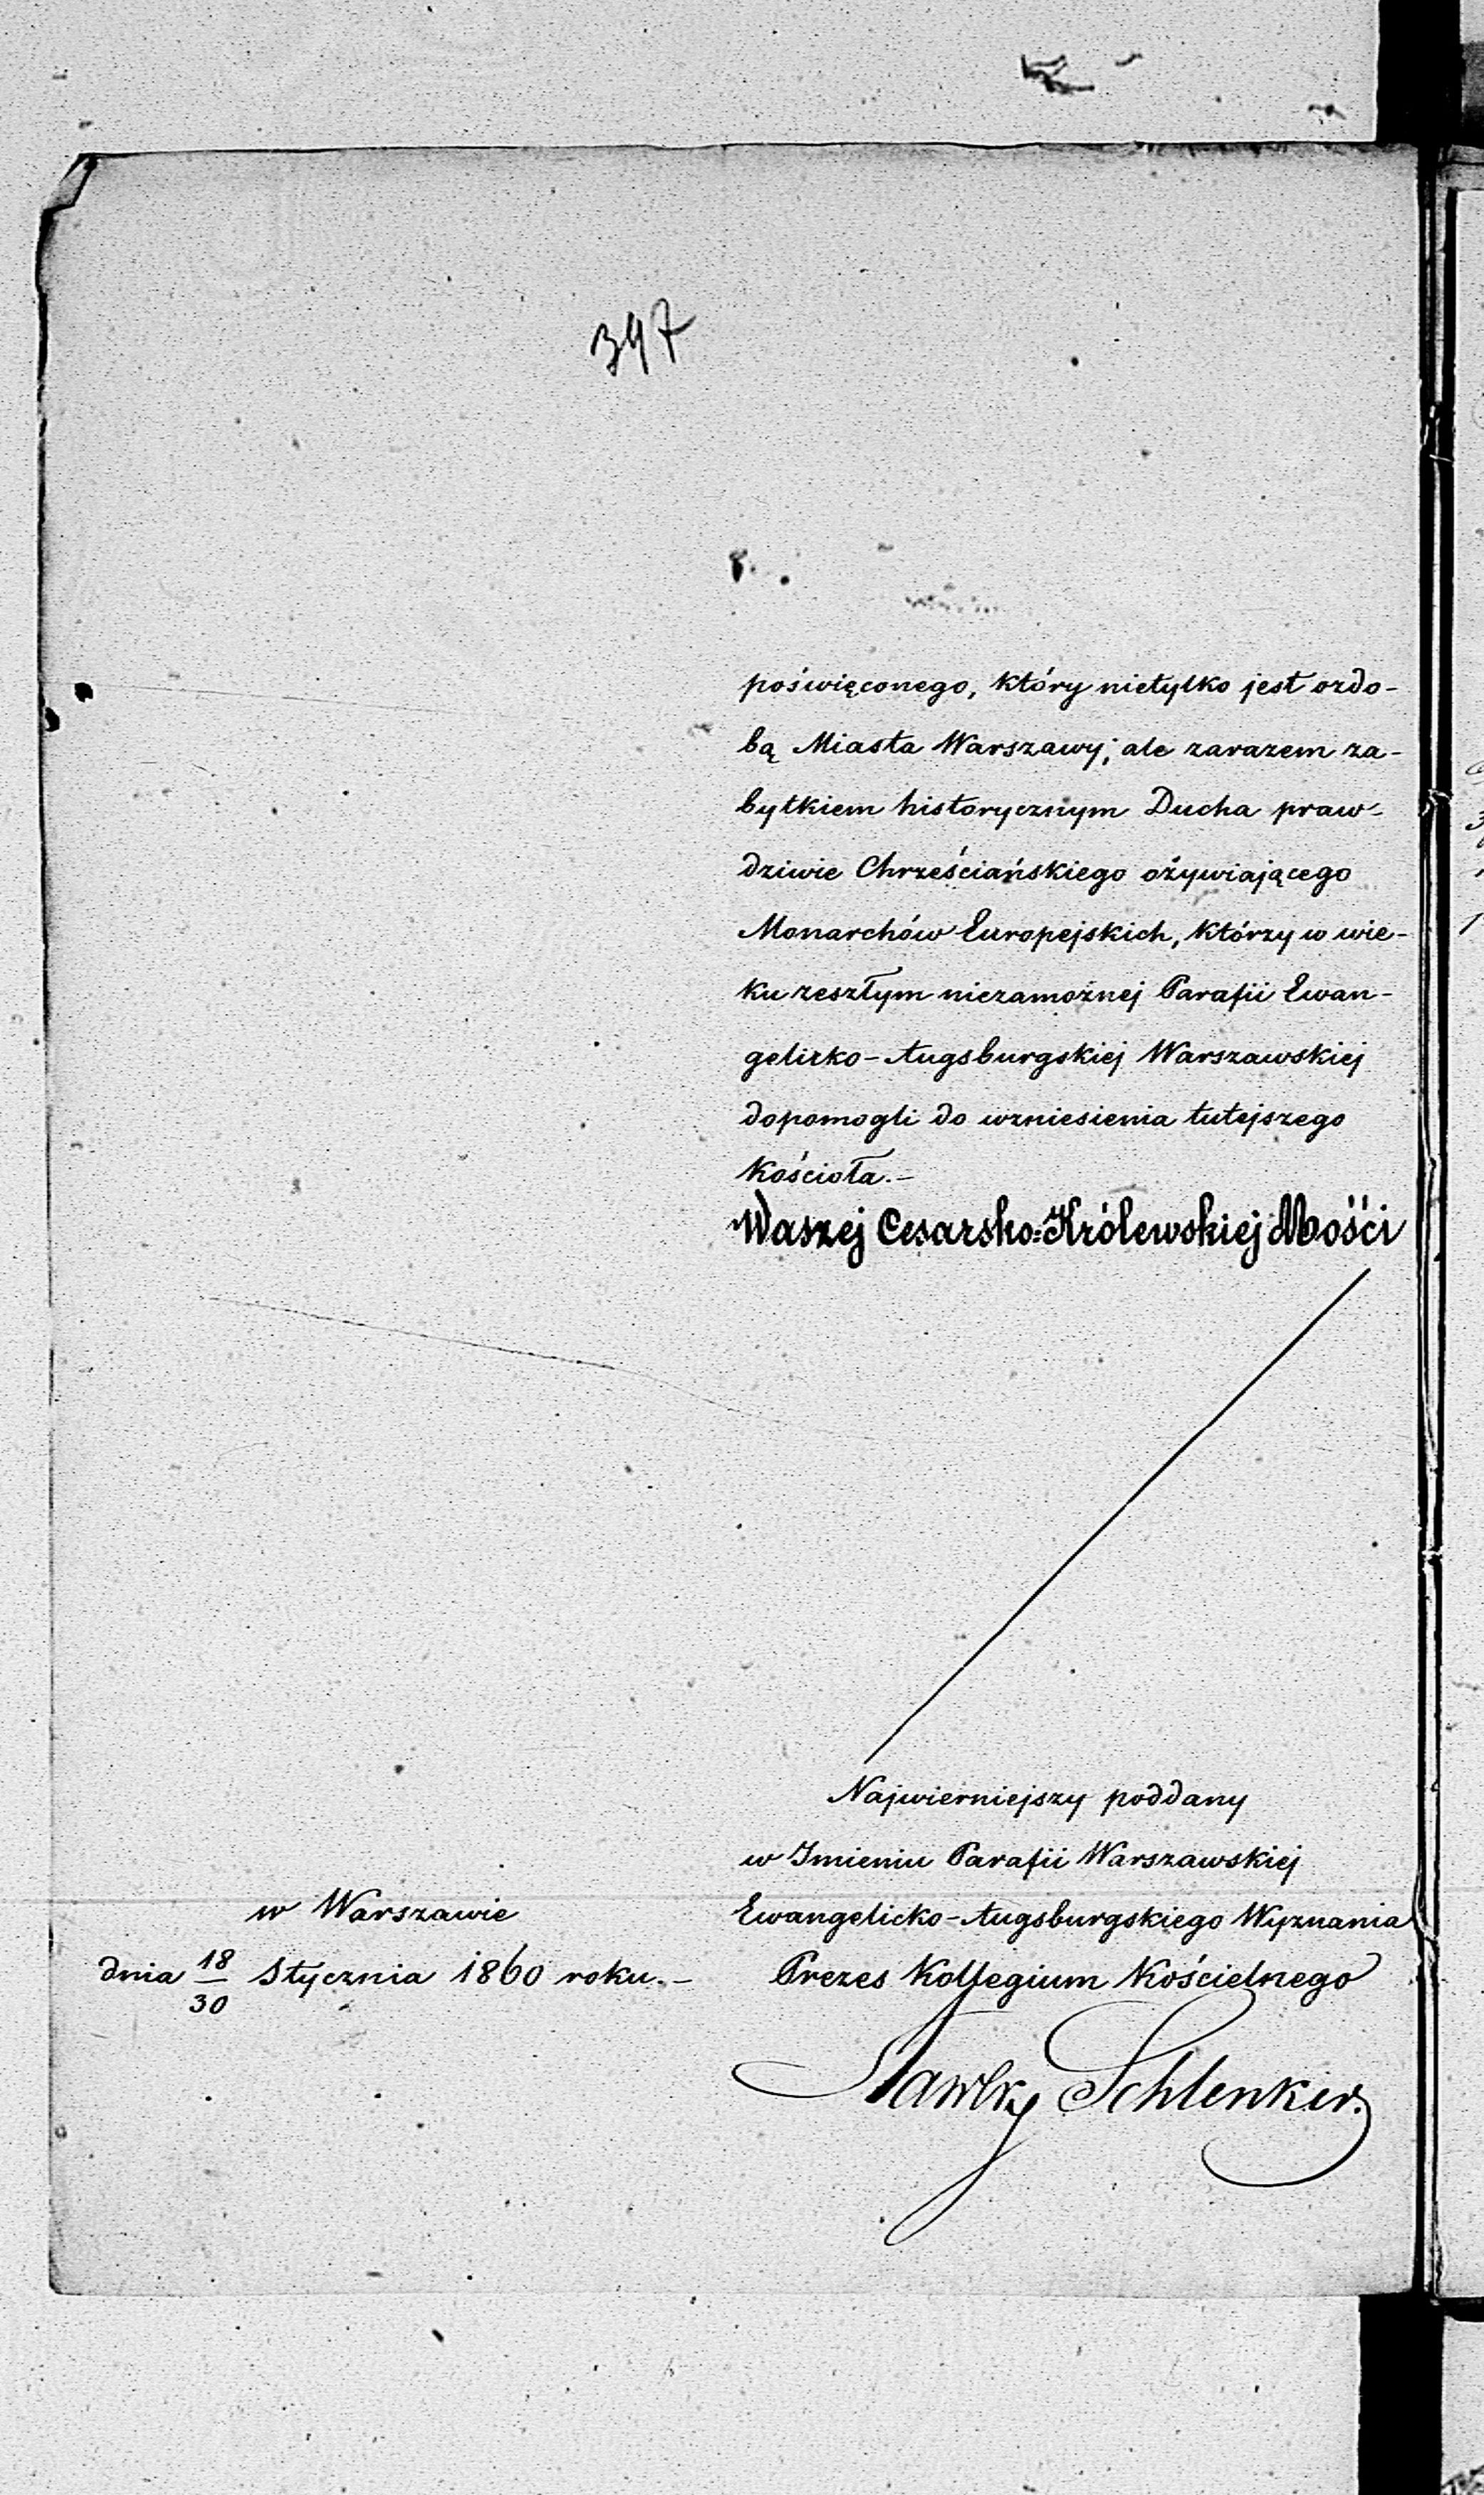 397
poświęconego, który nietylko jest ozdo-
bą Miasta Warszawy, ale zarazem za-
bytkiem historycznym Ducha praw-
dziwie Chrześciańskiego ożywiającego
Monarchów Europejskich, którzy w wie-
ku zeszłym niezamożnej Parafii Ewan-
gelicko-Augsburgskiej Warszawskiej
dopomogli do wzniesienia tutejszego
Kościoła.-
Waszej Cesarsko-Królewskiej Mości
Najwierniejszy poddany
w Imieniu Parafii Warszawskiej
Ewangelicko-Augsburgskiego Wyznania
Prezes Kollegium Kościelnego
Schlenker.
w Warszawie
dnia 18/30 Stycznia 1860 roku.-